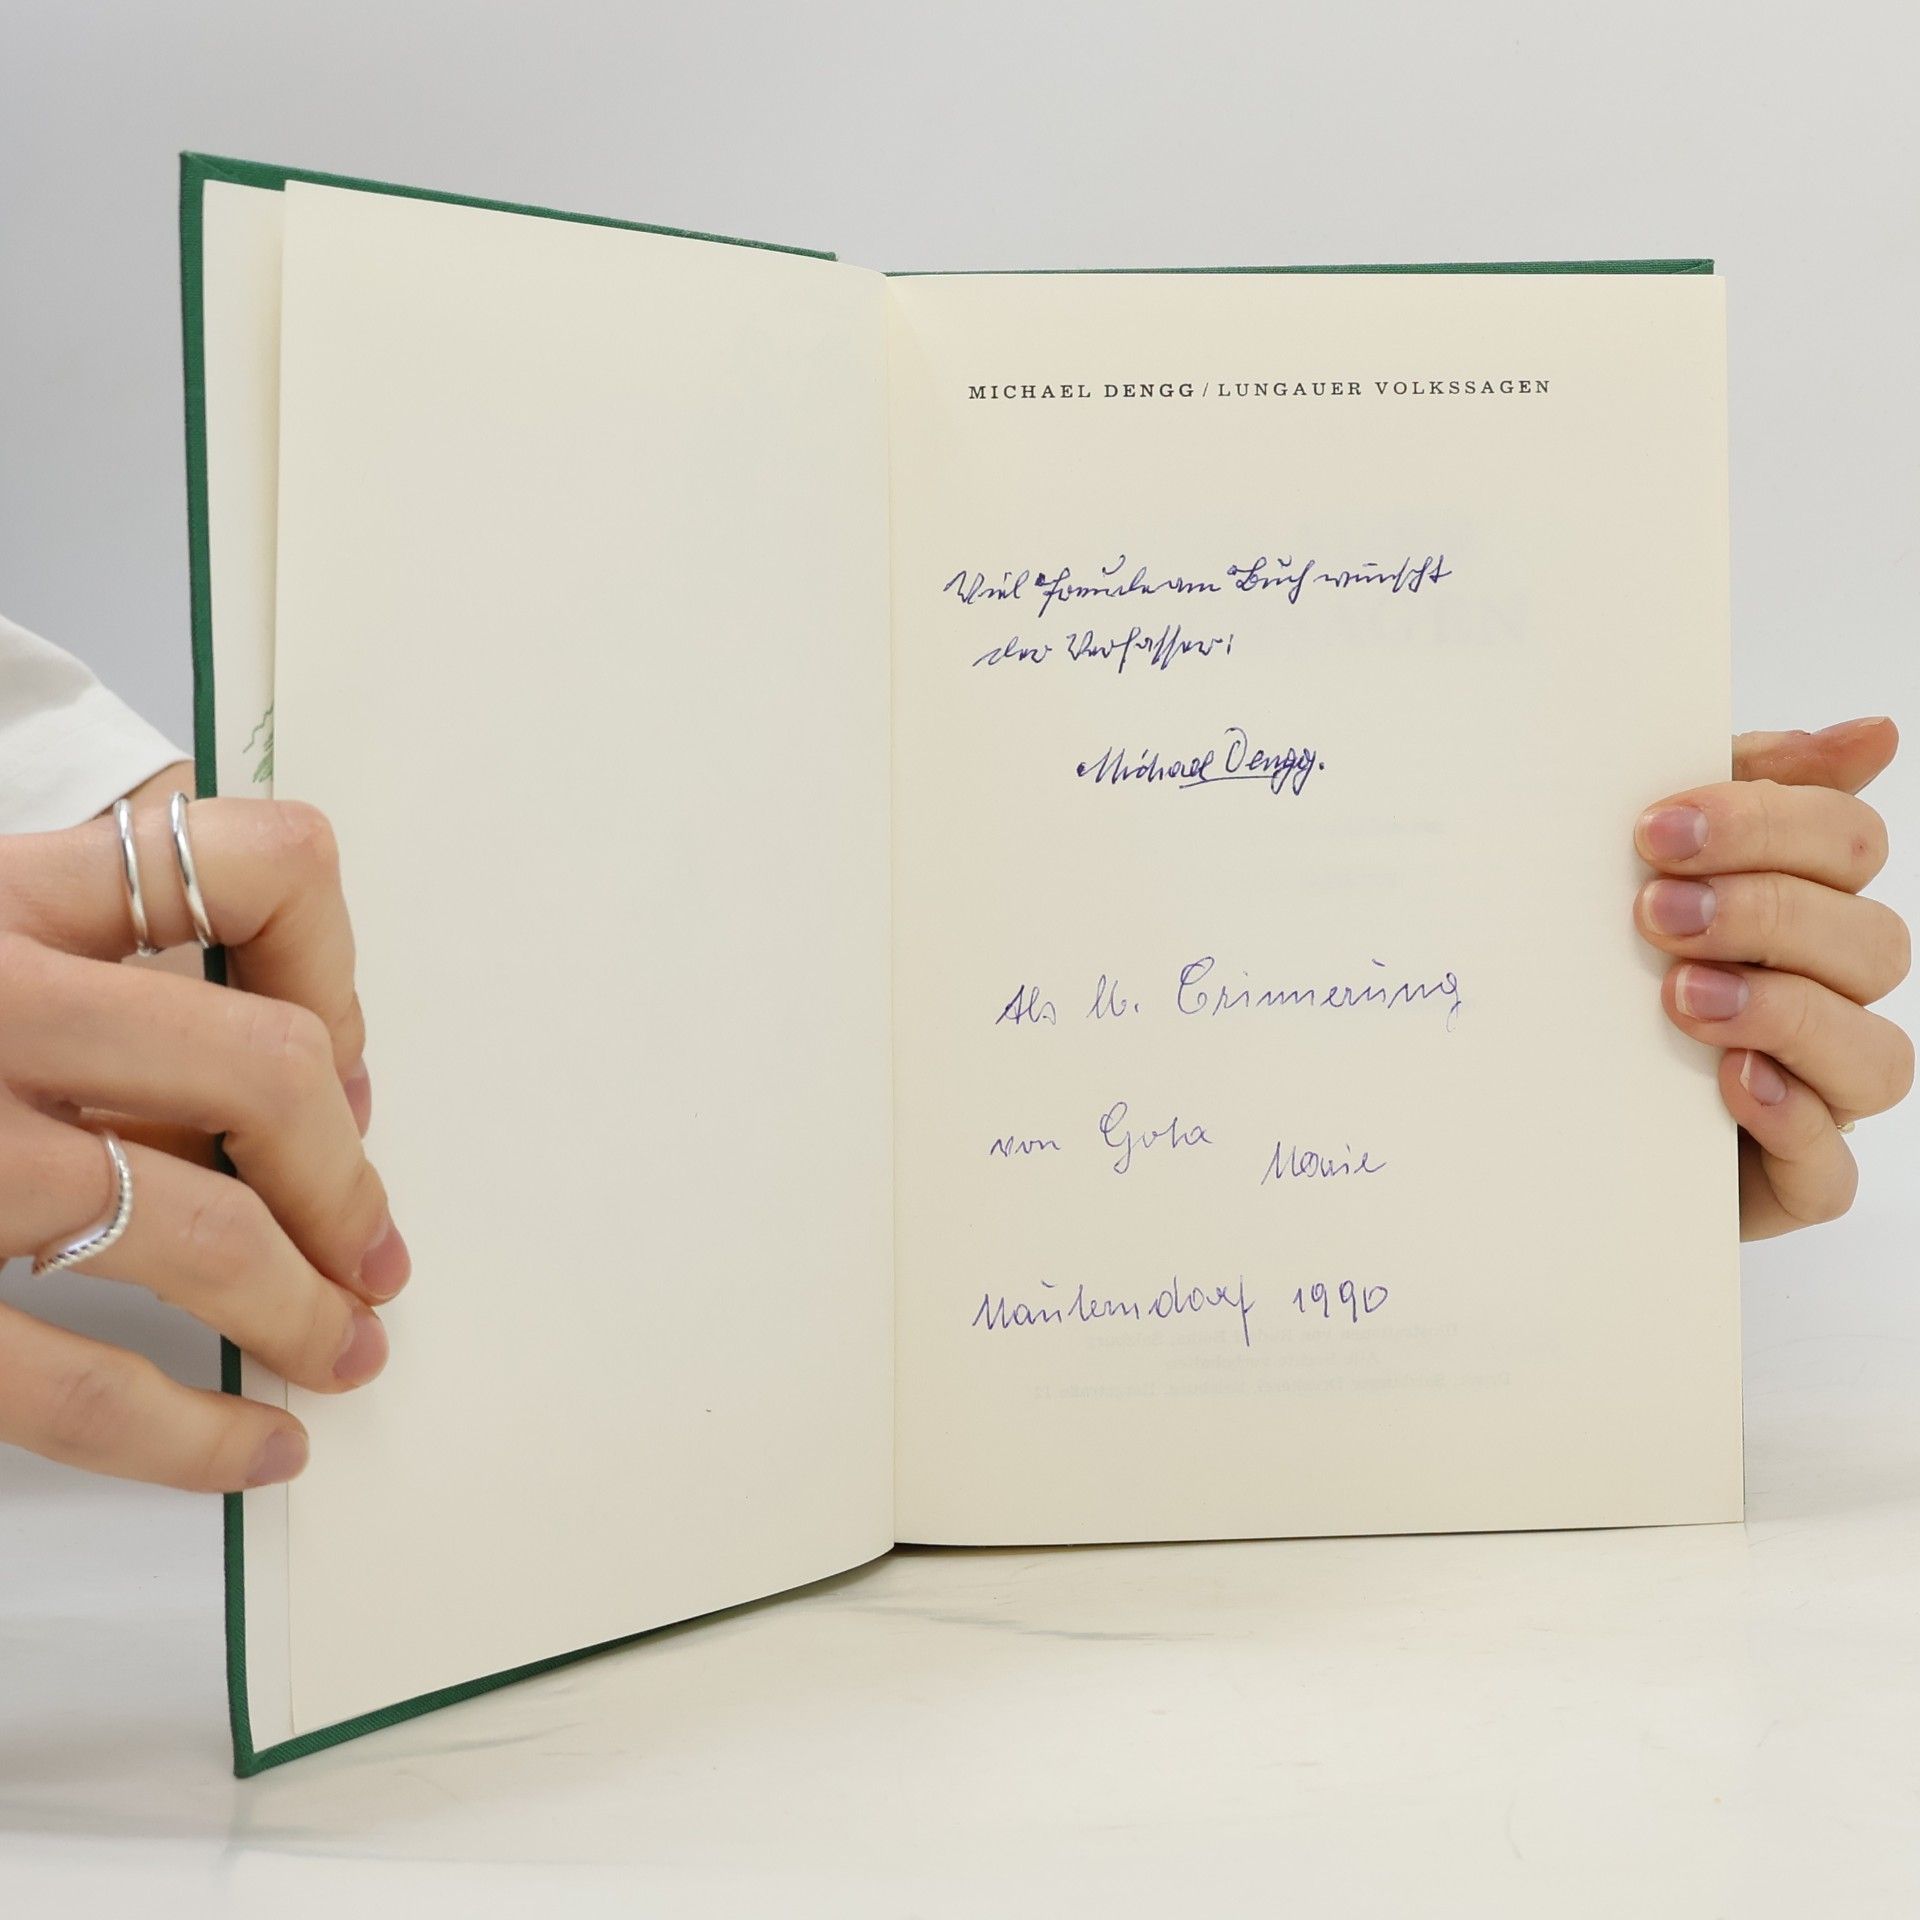 MICHAEL DENGG / LUNGAUER VOLKSSAGEN
Viel Freude am Buch wünscht
der Verfasser:
Michael Dengg.
Als kl. Erinnerung
von Gota
Marie
Mauterndorf 1990